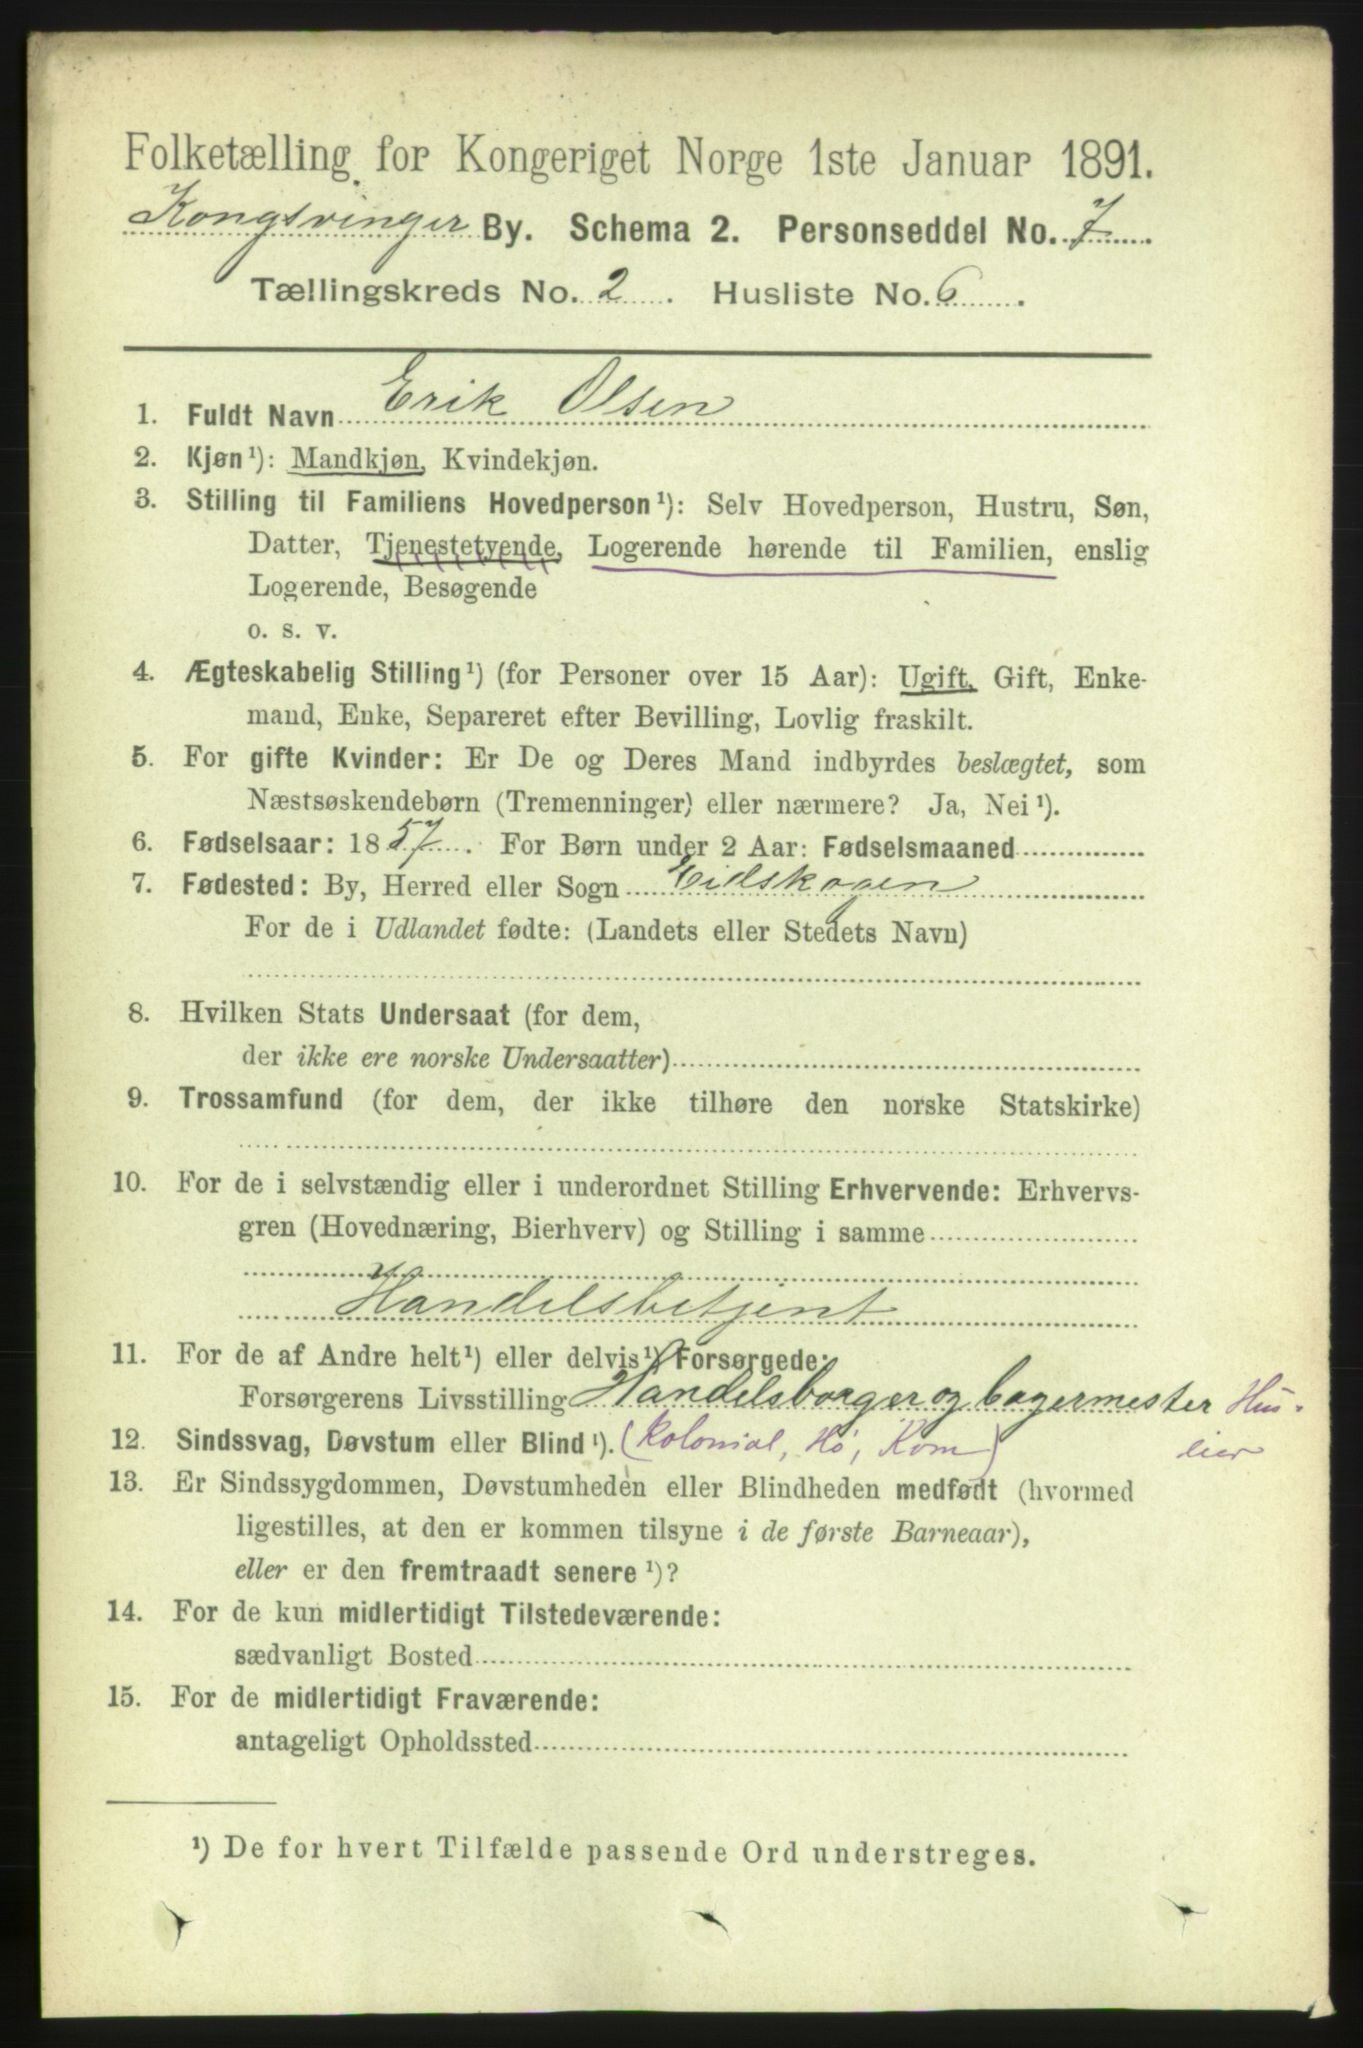 Folketælling for Kongeriget Norge 1ste Januar 1891.
Kongsvinger By. Schema 2. Personseddel No. 7
Tællingskreds No. 2. Husliste No. 6.
1. Fuldt Navn Erik Olsen
2. Kjøn¹): Mandkjøn, Kvindekjøn.
3. Stilling til Familiens Hovedperson¹): Selv Hovedperson, Hustru, Søn,
Datter, Tjenestetyende, Logerende hørende til Familien, enslig
Logerende, Besøgende
o. s. v.
4. Ægteskabelig Stilling¹) (for Personer over 15 Aar): Ugift, Gift, Enke-
mand, Enke, Separeret efter Bevilling, Lovlig fraskilt.
5. For gifte Kvinder: Er De og Deres Mand indbyrdes beslægtet, som
Næstsøskendebørn (Tremenninger) eller nærmere? Ja, Nei¹).
6. Fødselsaar: 1857. For Børn under 2 Aar: Fødselsmaaned
7. Fødested: By, Herred eller Sogn Eidskogen
For de i Udlandet fødte: (Landets eller Stedets Navn)
8. Hvilken Stats Undersaat (for dem,
der ikke ere norske Undersaatter)
9. Trossamfund (for dem, der ikke tilhøre den norske Statskirke)
10. For de i selvstændig eller i underordnet Stilling Erhvervende: Erhvervs-
gren (Hovednæring, Bierhverv) og Stilling i samme
Handelsbetjent
11. For de af Andre helt¹) eller delvis¹) Forsørgede:
Forsørgerens Livsstilling Handelsborger og bagermester Hus-
12. Sindssvag, Døvstum eller Blind¹). (Kolonial, Hø, Korn) eier
13. Er Sindssygdommen, Døvstumheden eller Blindheden medfødt (hvormed
ligestilles, at den er kommen tilsyne i de første Barneaar),
eller er den fremtraadt senere¹)?
14. For de kun midlertidigt Tilstedeværende:
sædvanligt Bosted
15. For de midlertidigt Fraværende:
antageligt Opholdssted
¹) De for hvert Tilfælde passende Ord understreges.